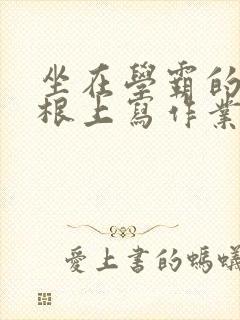 坐在學霸的
根上寫作業
愛上書的螞蟻